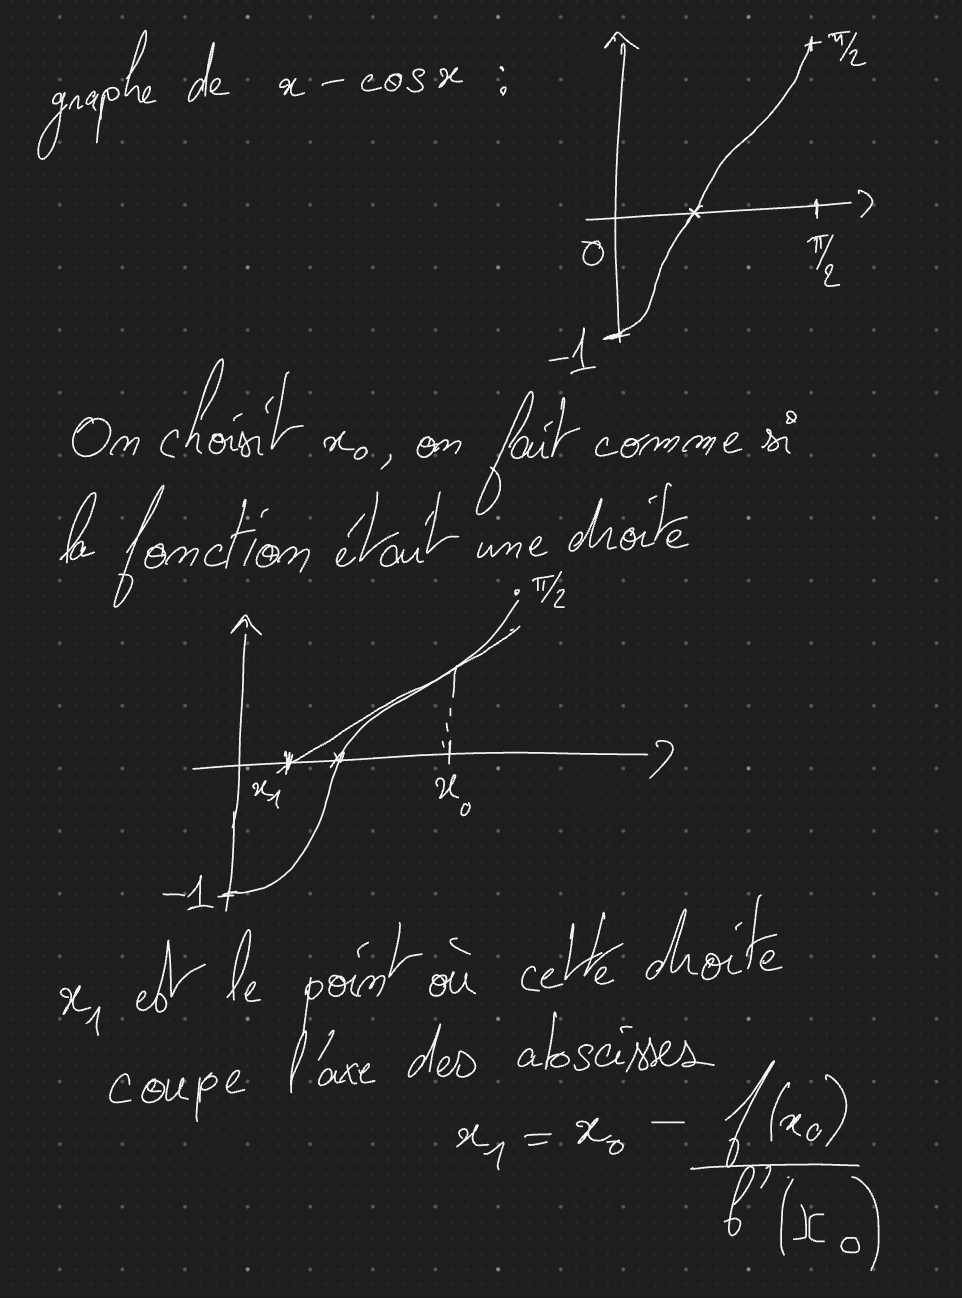 graphe de x - cosx :
π/2
0
π/2
-1
On choisit x₀, on fait comme si
la fonction était une droite
π/2
x₁
x₀
-1
x₁ est le point où cette droite
coupe l'axe des abscisses
x₁ = x₀ - f(x₀)
f'(x₀)